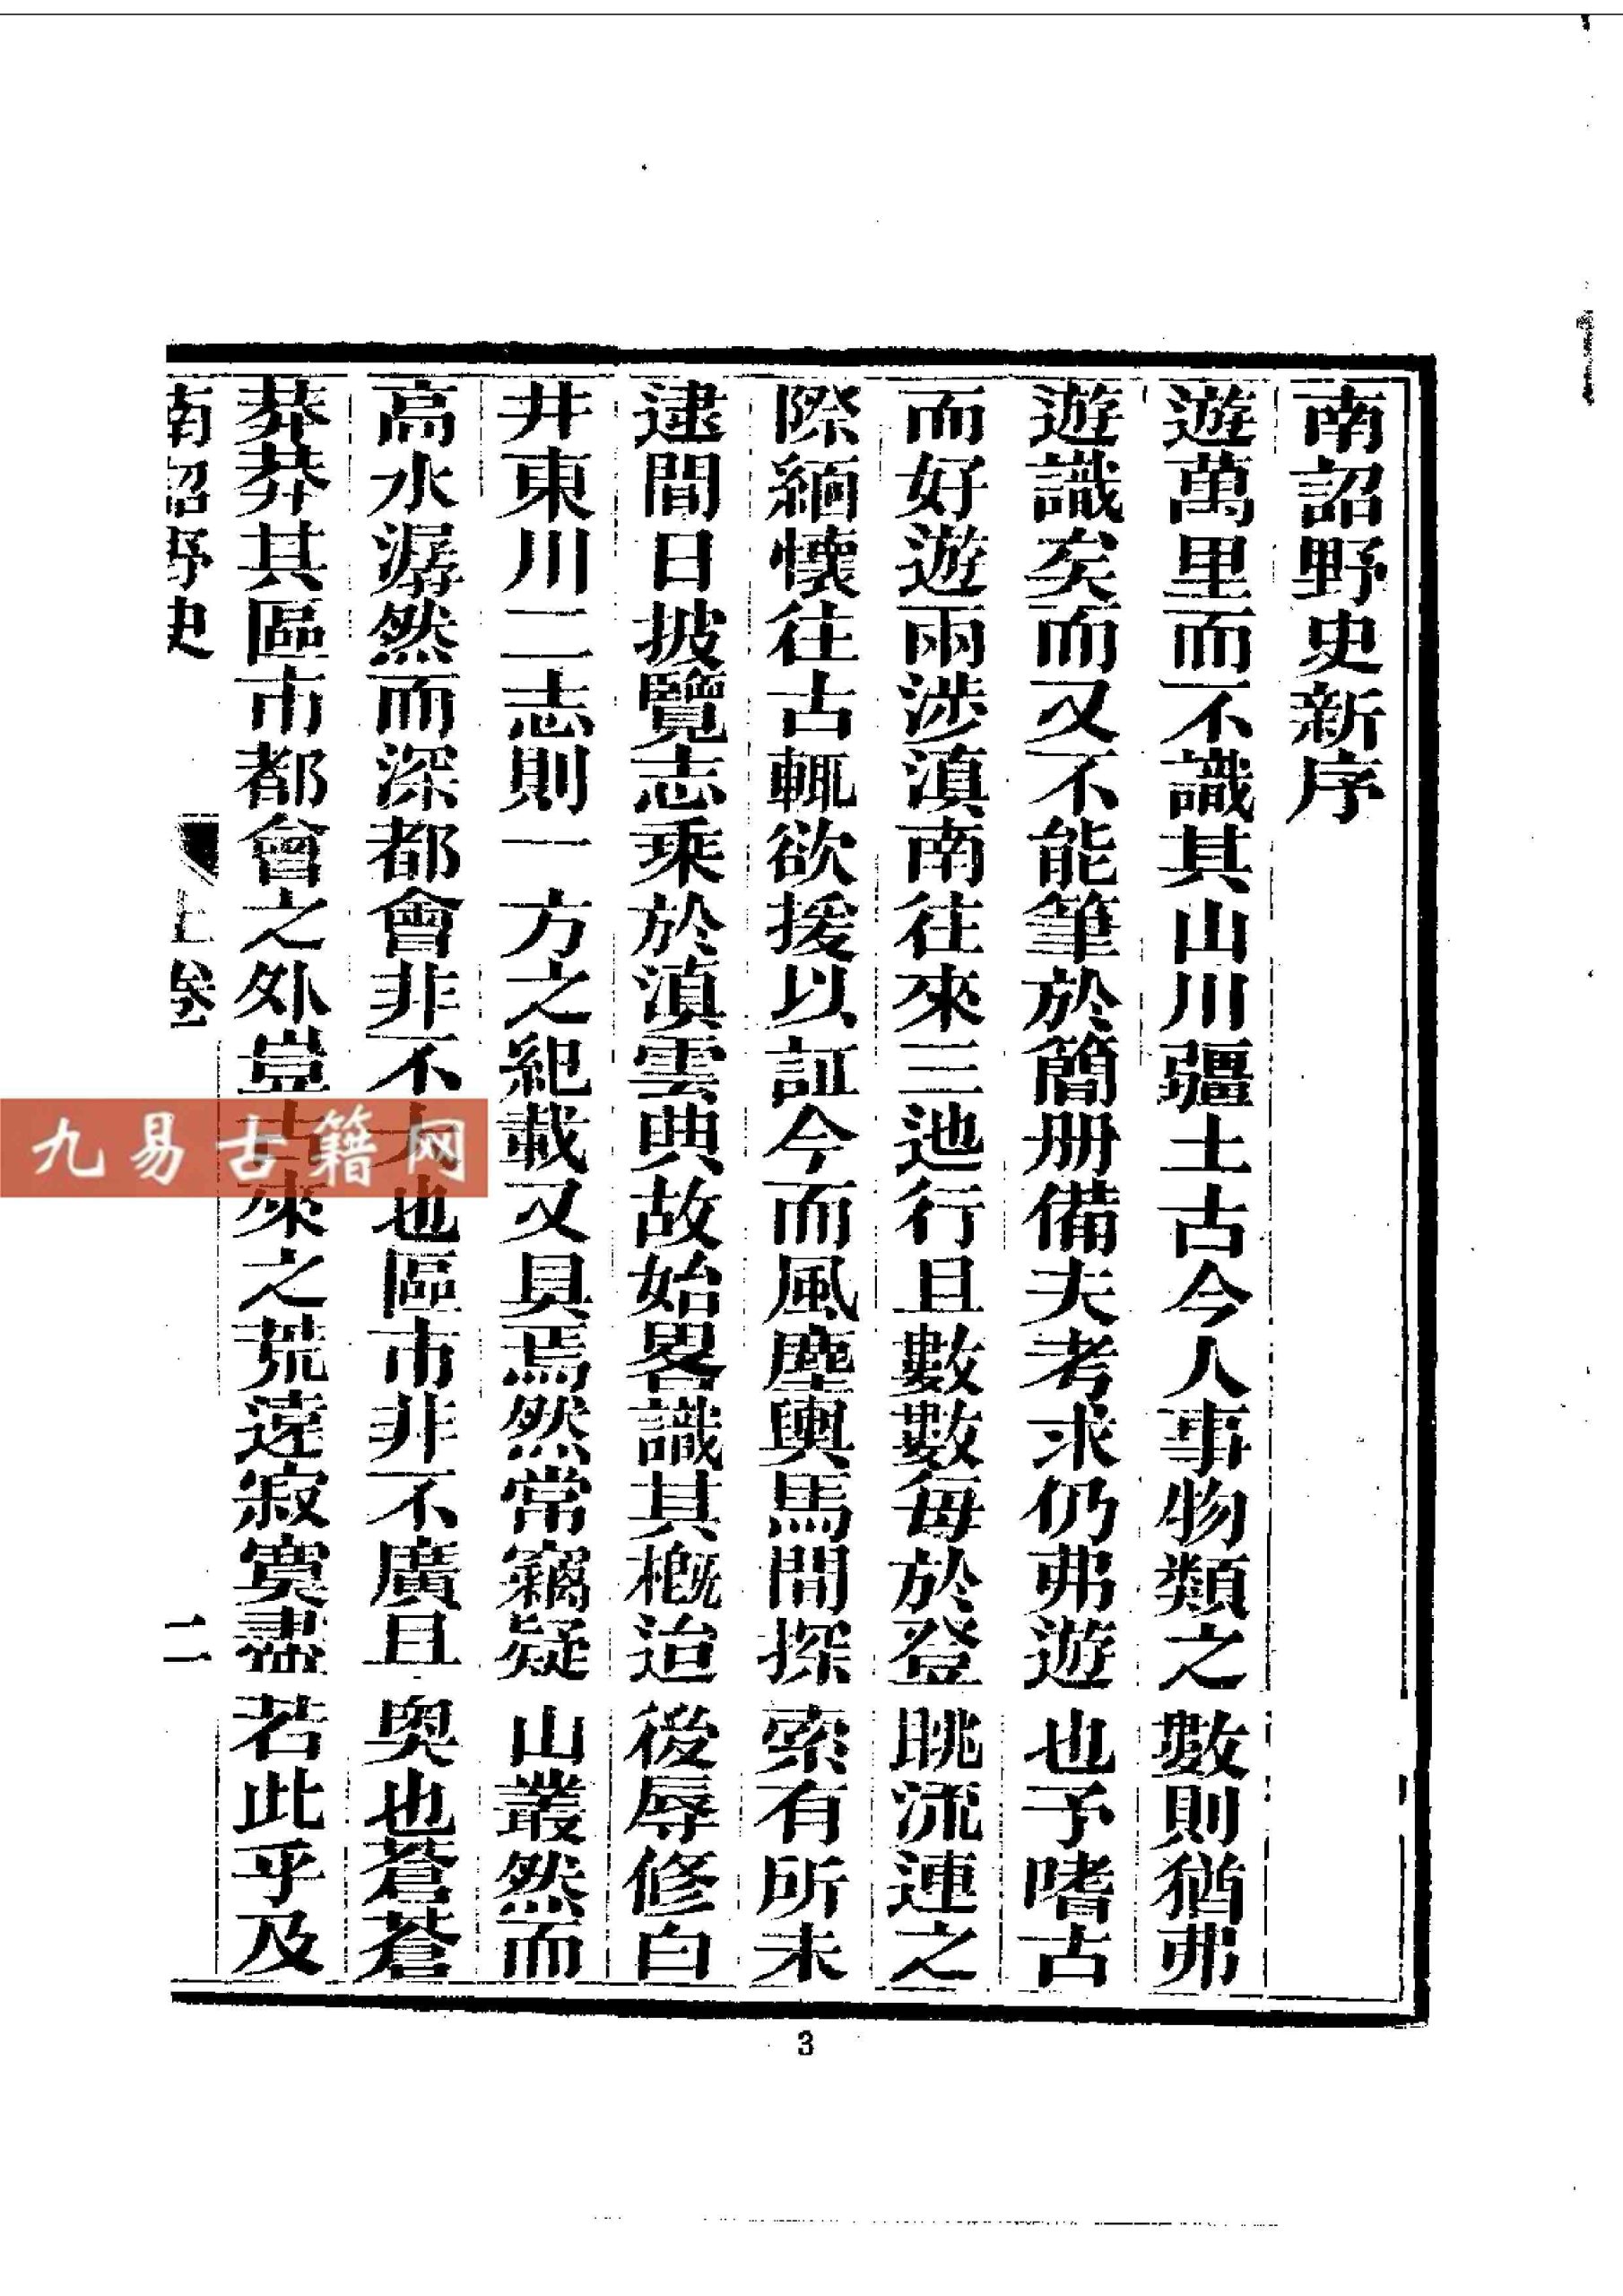 南詔野史新序
遊萬里而不識其山川疆土古今人事物類之數則猶弗
遊識矣而又不能筆於簡册備夫考求仍弗遊也予嗜古
而好遊兩涉滇南往來三迆行且數數每於登眺流連之
際緬懷往古輒欲援以証今而風塵輿馬間探索有所未
逮間日披覽志乘於滇雲典故始畧識其槪迨後辱修白
井東川二志則一方之紀載又具焉然常竊疑山叢然而
高水潺然而深都會非不大也區市非不廣且奥也蒼蒼
莽莽其區市都會之外豈古來之荒遠寂寞盡若此乎及
南詔野史
上卷
二
九易古籍网
3